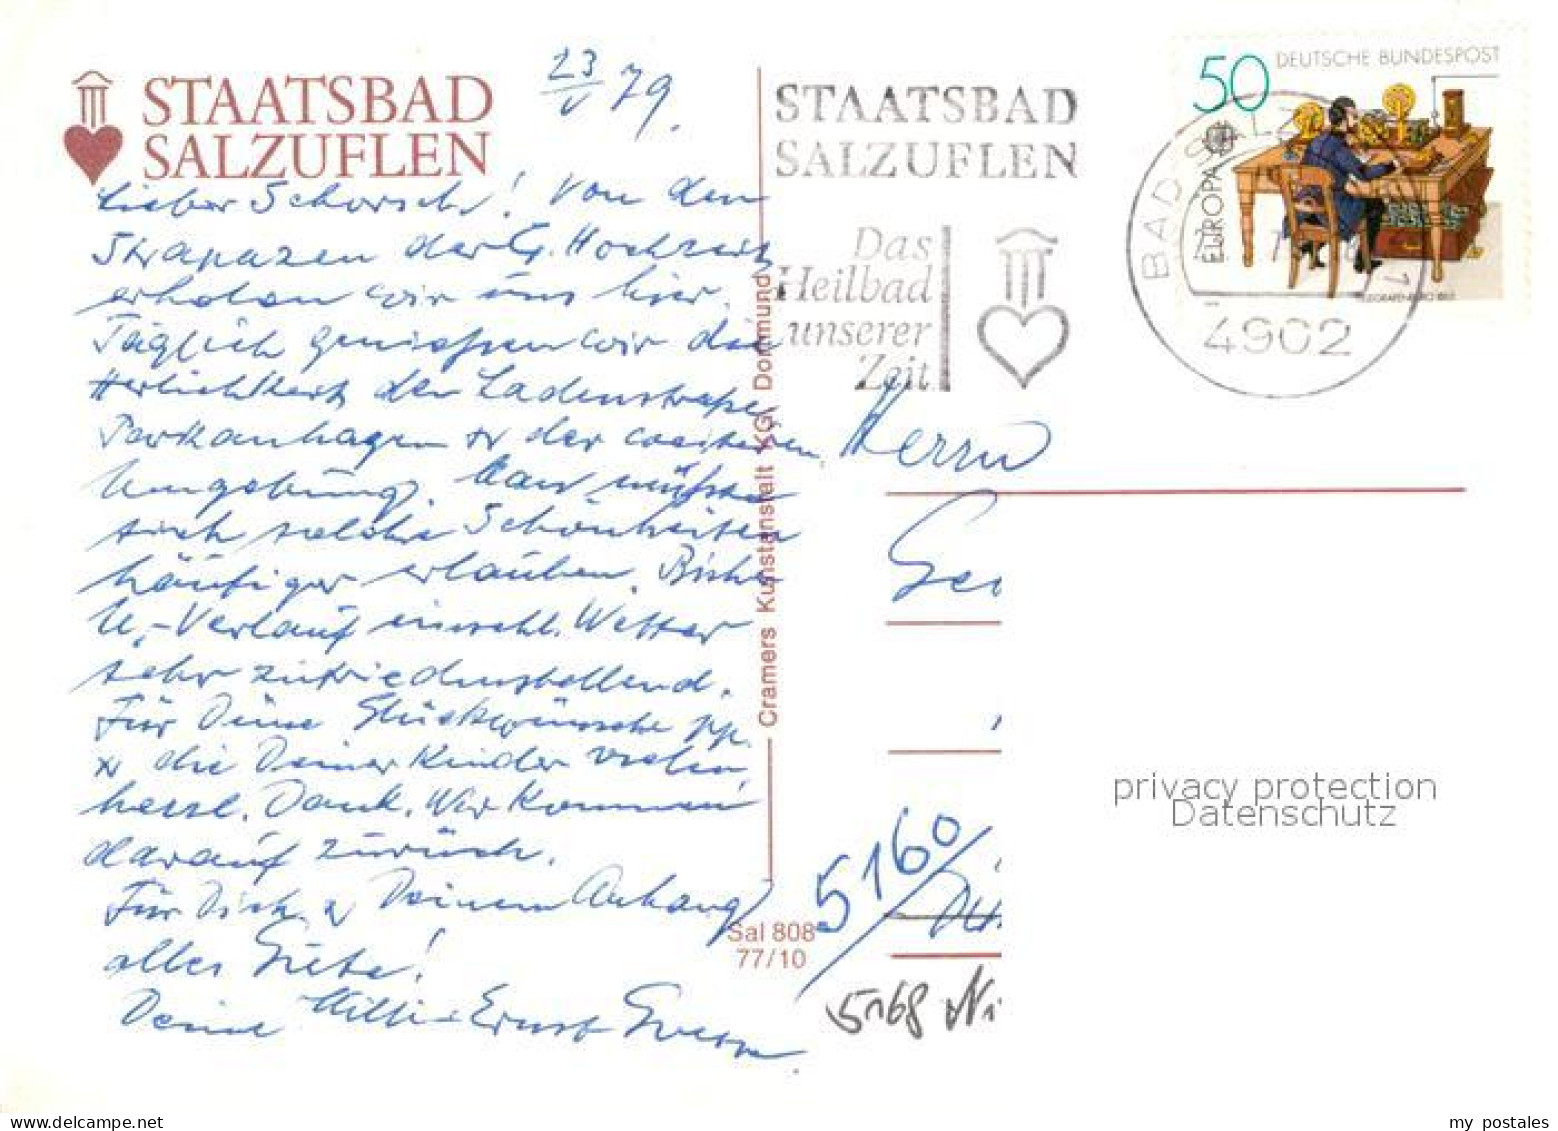 23/V 79.
STAATSBAD
SALZUFLEN
Lieber Schorsch! Von den
Strapazen der G. Hochzeit
erholen wir uns hier.
Täglich geniessen wir die
Herlichkeit der Ladenstrasse,
Parkanlagen u. der weiteren
Umgebung. Man müsste
sich solche Schönheiten
häufiger erlauben. Bisher
U.-Verlauf einschl. Wetter
sehr zufriedenstellend.
Für Deine Glückwünsche pp.
u. die Deiner Kinder vielen
herzl. Dank. Wir kommen
darauf zurück.
Für Dich u. Deinen Anhang
alles Gute!
Deine Ernst
Cramers Kunstanstalt KG, Dortmund
Sal 808
77/10
STAATSBAD
SALZUFLEN
Das
Heilbad
unserer
Zeit
50 DEUTSCHE BUNDESPOST
EUROPA
BAD SALZ
4902
Herrn
5160
5168 Ni
privacy protection
Datenschutz
my postales